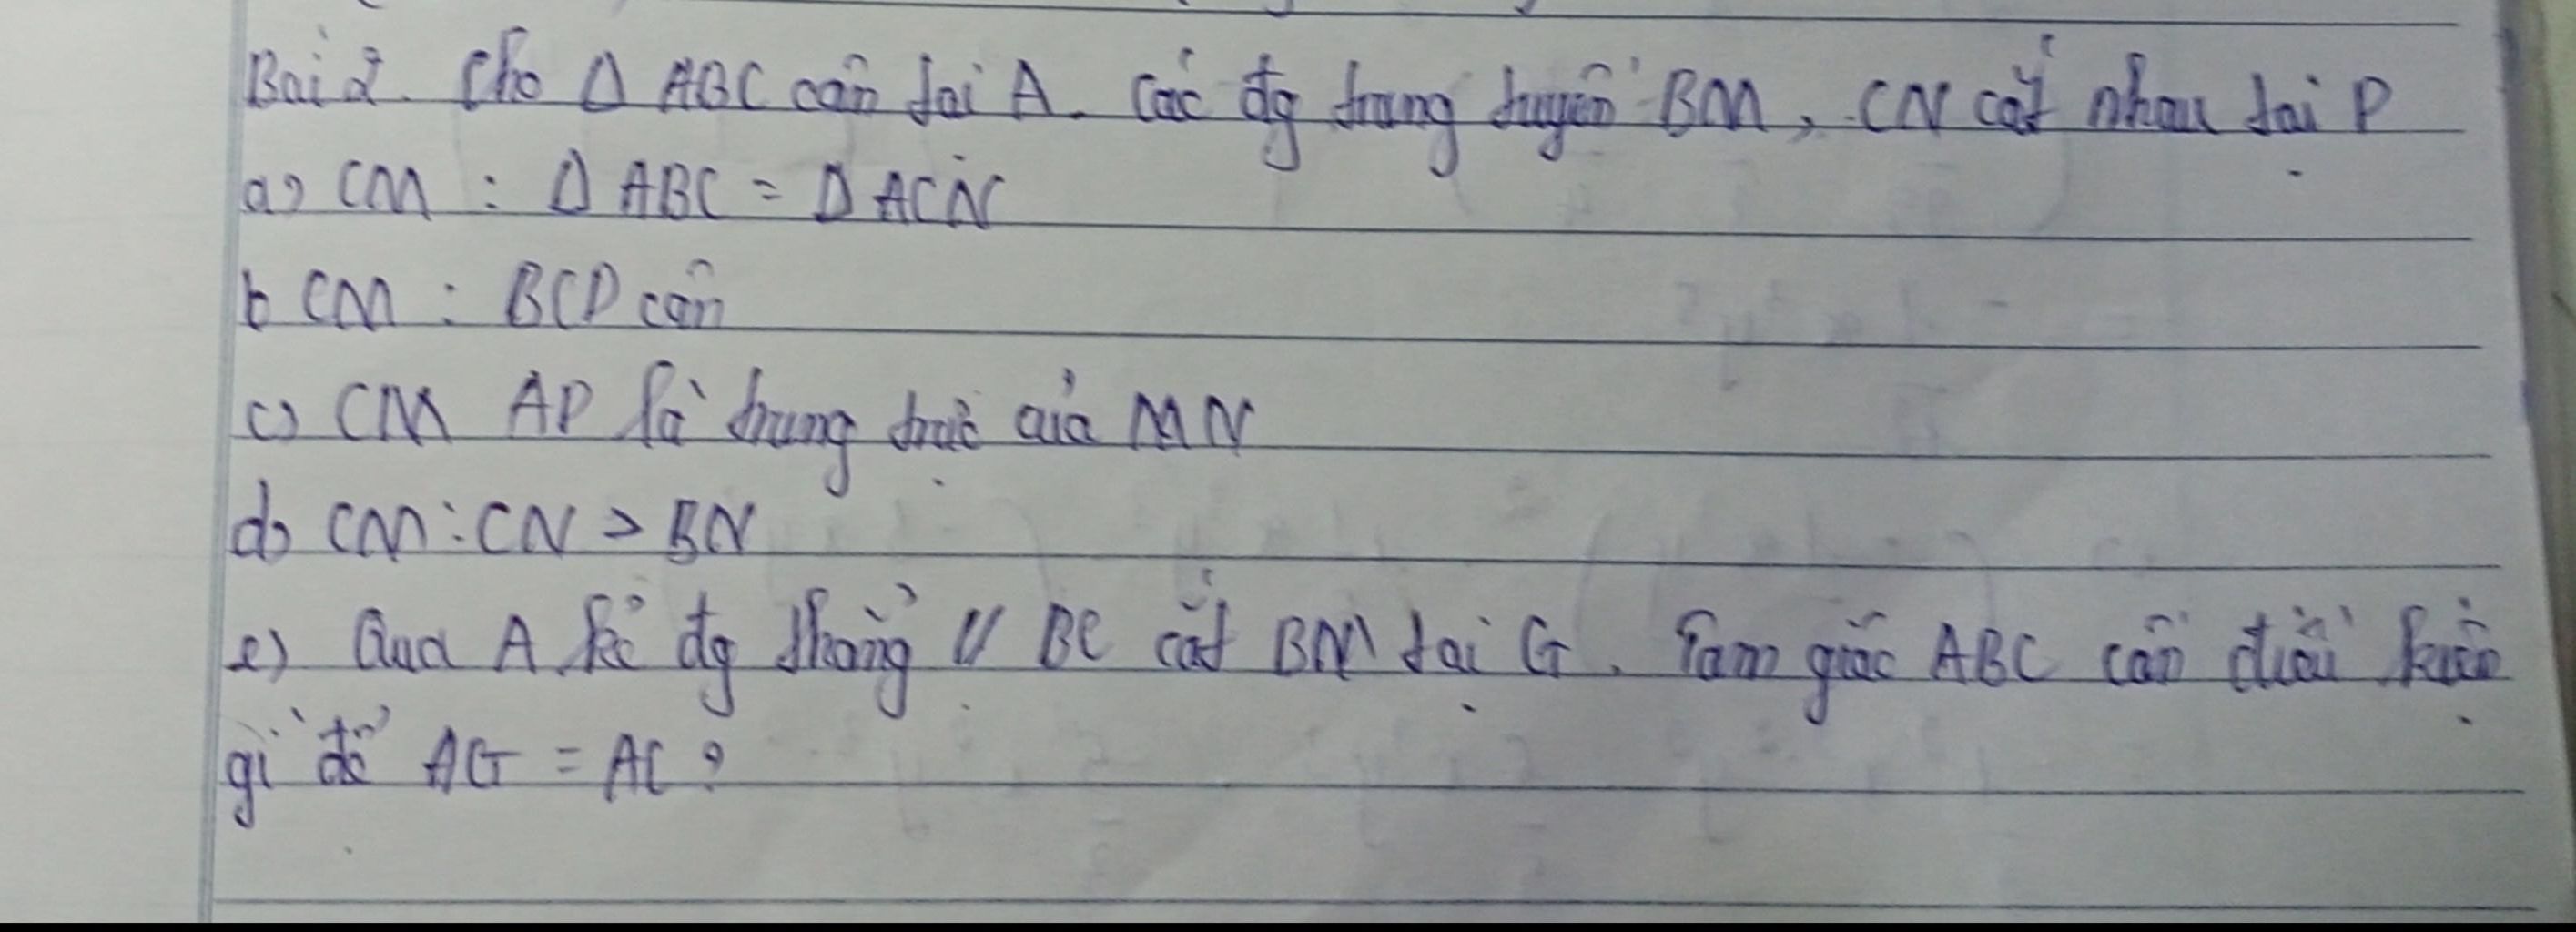 Bài 2. Cho Δ ABC cân tại A. Các đg trung tuyến BM, CN cắt nhau tại P
a) CM : Δ ABC = Δ ACN
b CM : BCP cân
c) CM AP là trung trực của MN
d) CM : CN > BN
e) Qua A kẻ đg thẳng // BC cắt BM tại G. Tam giác ABC cần điều kiện
gì để AG = AC ?